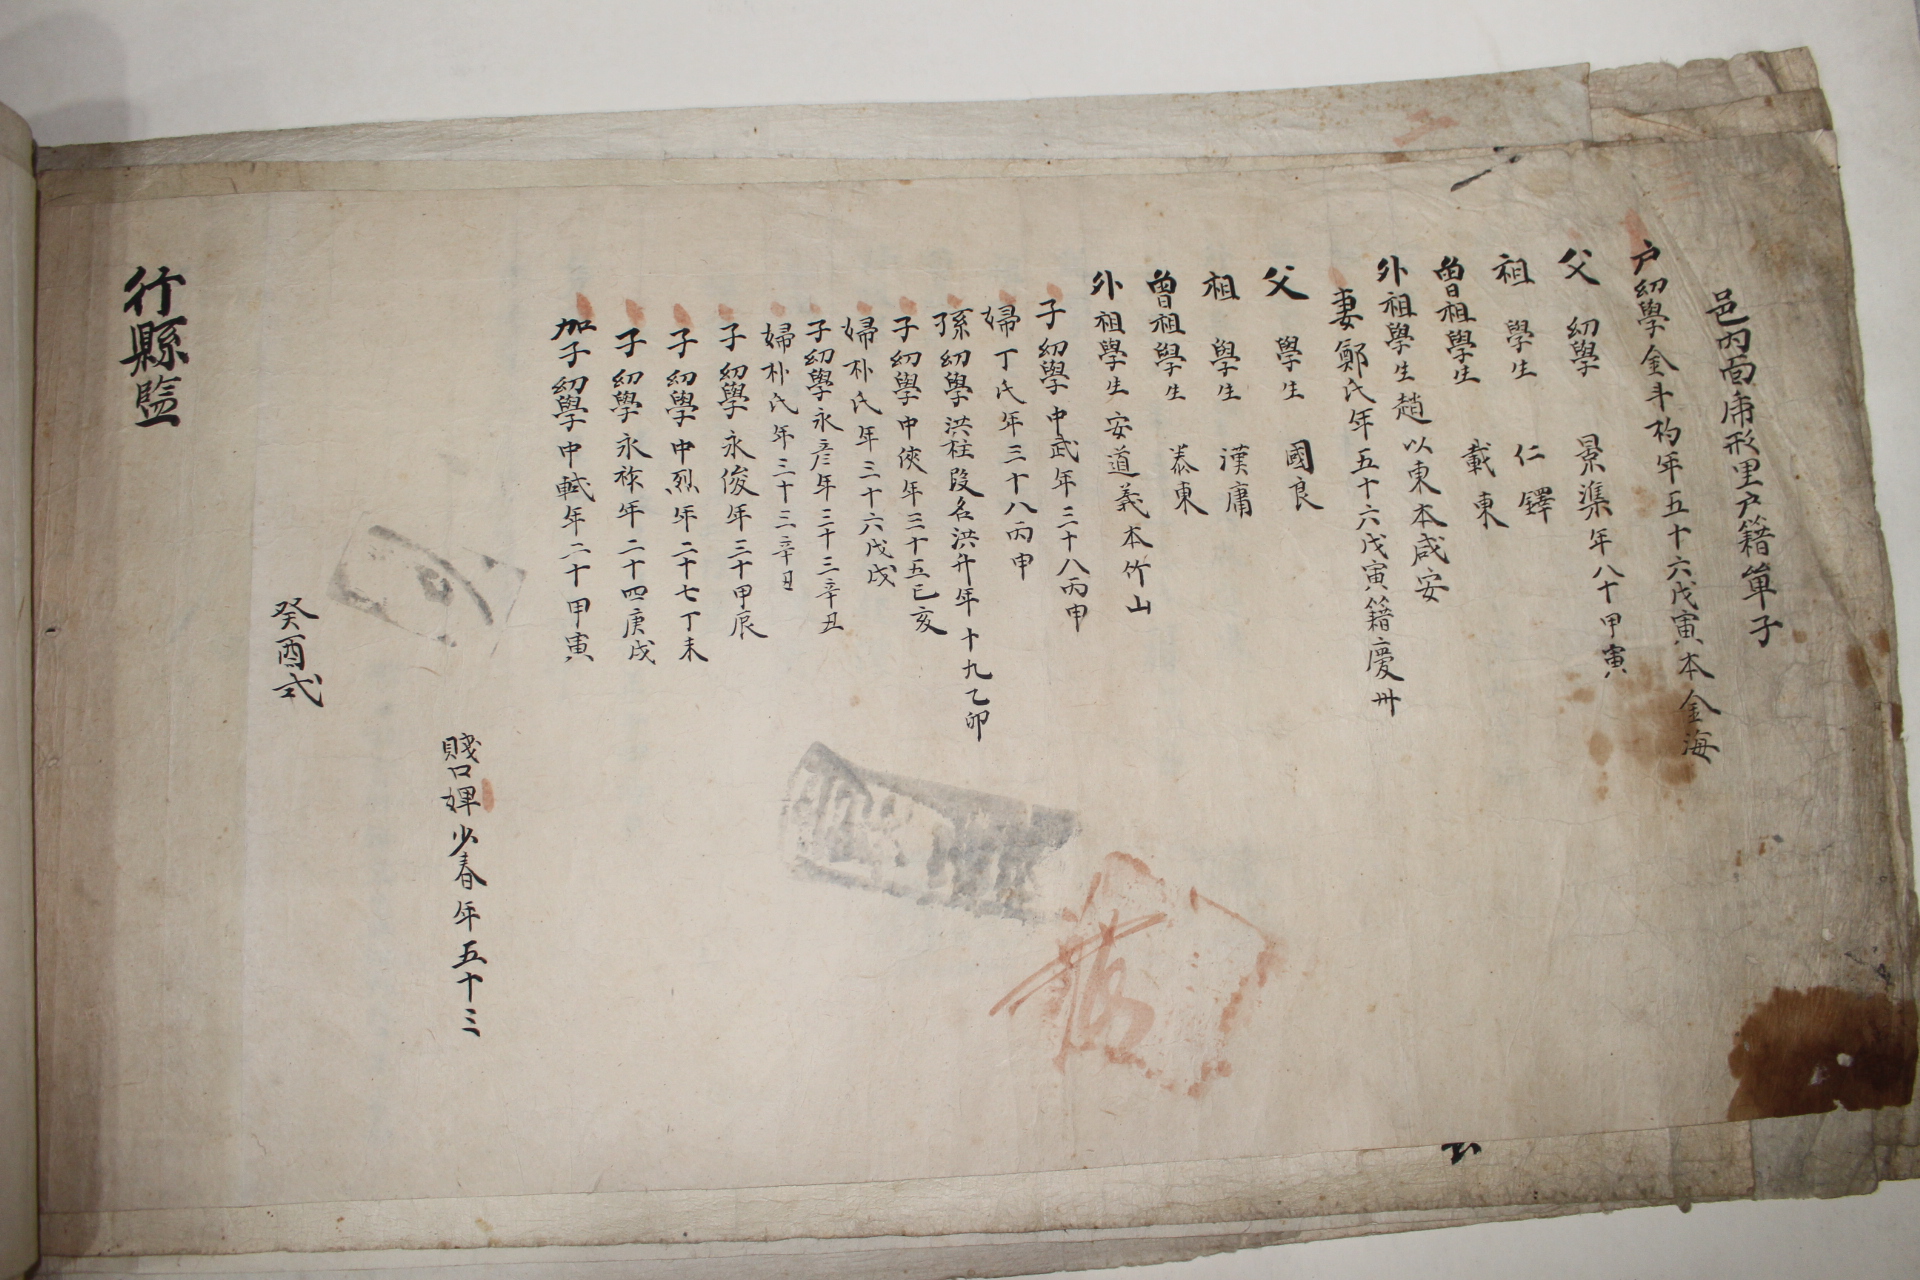 邑內面庸形里户籍單子
户幼學金斗杓年五十六戊寅本金海
父幼學景潗年八十甲寅
祖學生仁鐸
曾祖學生載東
外祖學生趙以東本咸安
妻鄭氏年五十六戊寅籍慶州
父學生國良
祖學生漢庸
曾祖學生泰東
外祖學生安道義本竹山
子幼學中武年三十八丙申
婦丁氏年三十八丙申
孫幼學洪柱改名洪年十九乙卯
子幼學中俠年三十五己亥
婦朴氏年三十六戊戌
子幼學永彦年三十三辛丑
婦朴氏年三十三辛丑
子幼學永俊年三十甲辰
子幼學中烈年二十七丁未
子幼學永祚年二十四庚戌
加子幼學中軾年二十甲寅
賤口婢少春年五十三
癸酉式
行縣監